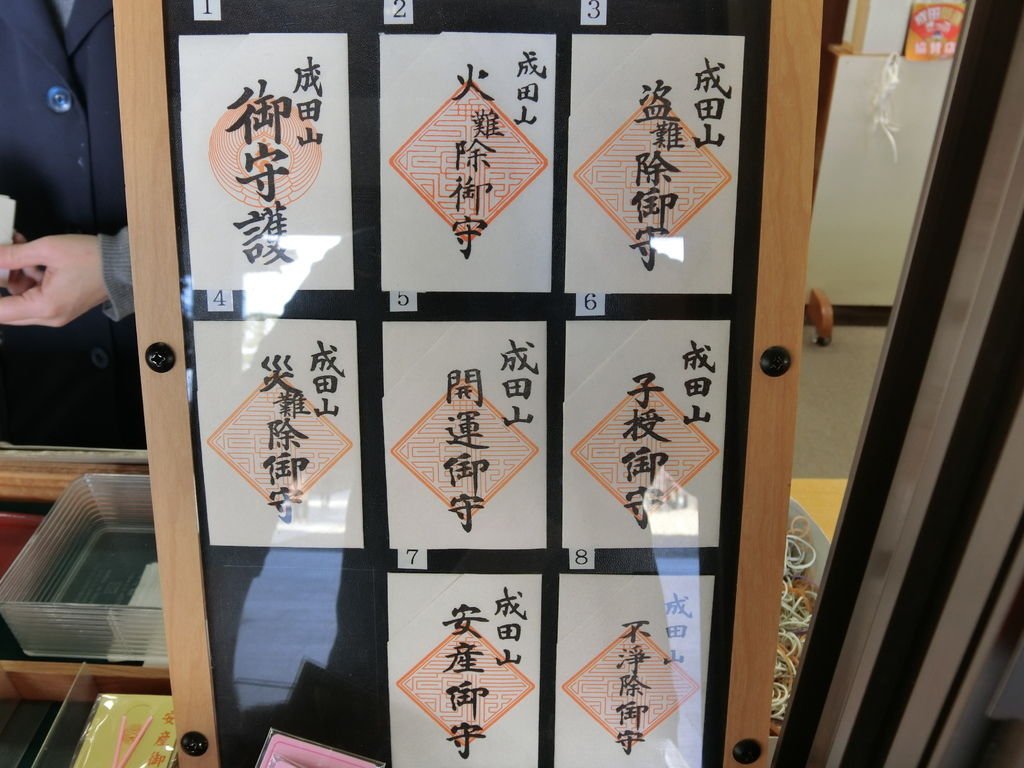 1
成田山
御守護
2
成田山
火難除御守
3
成田山
盗難除御守
4
成田山
災難除御守
5
成田山
開運御守
6
成田山
子授御守
7
成田山
安産御守
8
成田山
不淨除御守
安産御
協賛店